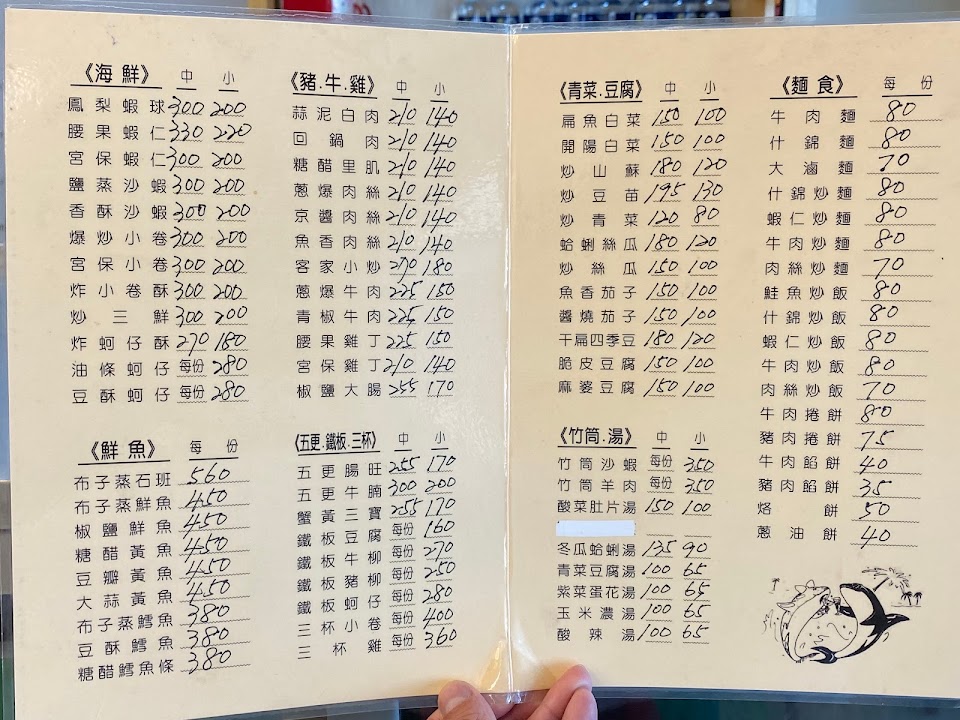 《海鮮》 中 小
鳳梨蝦球 300 200
腰果蝦仁 330 220
宮保蝦仁 300 200
鹽蒸沙蝦 300 200
香酥沙蝦 300 200
爆炒小卷 300 200
宮保小卷 300 200
炸小卷酥 300 200
炒三鮮 300 200
炸蚵仔酥 270 180
油條蚵仔 每份 280
豆酥蚵仔 每份 280
《鮮魚》 每份
布子蒸石班 560
布子蒸鮮魚 450
椒鹽鮮魚 450
糖醋黃魚 450
豆瓣黃魚 450
大蒜黃魚 450
布子蒸鱈魚 380
豆酥鱈魚 380
糖醋鱈魚條 380
《豬.牛.雞》 中 小
蒜泥白肉 210 140
回鍋肉 210 140
糖醋里肌 210 140
蔥爆肉絲 210 140
京醬肉絲 210 140
魚香肉絲 210 140
客家小炒 270 180
蔥爆牛肉 225 150
青椒牛肉 225 150
腰果雞丁 225 150
宮保雞丁 210 140
椒鹽大腸 255 170
《五更.鐵板.三杯》 中 小
五更腸旺 255 170
五更牛腩 300 200
蟹黃三寶 255 170
鐵板豆腐 每份 160
鐵板牛柳 每份 270
鐵板豬柳 每份 250
鐵板蚵仔 每份 280
三杯小卷 每份 400
三杯雞 每份 360
《青菜.豆腐》 中 小
扁魚白菜 150 100
開陽白菜 150 100
炒山蘇 180 120
炒豆苗 195 130
炒青菜 120 80
蛤蜊絲瓜 180 120
炒絲瓜 150 100
魚香茄子 150 100
醬燒茄子 150 100
干扁四季豆 180 120
脆皮豆腐 150 100
麻婆豆腐 150 100
《竹筒.湯》 中 小
竹筒沙蝦 每份 350
竹筒羊肉 每份 350
酸菜肚片湯 150 100
冬瓜蛤蜊湯 135 90
青菜豆腐湯 100 65
紫菜蛋花湯 100 65
玉米濃湯 100 65
酸辣湯 100 65
《麵食》 每份
牛肉麵 80
什錦麵 80
大滷麵 70
什錦炒麵 80
蝦仁炒麵 80
牛肉炒麵 80
肉絲炒麵 70
鮭魚炒飯 80
什錦炒飯 80
蝦仁炒飯 80
牛肉炒飯 80
肉絲炒飯 70
牛肉捲餅 80
豬肉捲餅 75
牛肉餡餅 40
豬肉餡餅 35
烙餅 50
蔥油餅 40